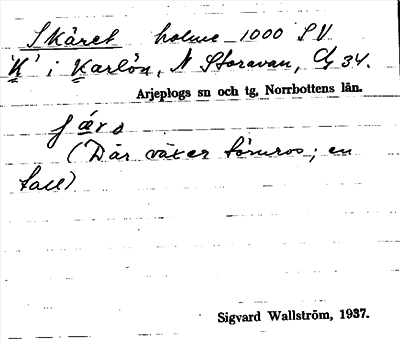 Skäret holme 1000 SV
K' i Karlön, N Storavan, G 34.
Arjeplogs sn och tg, Norrbottens län.
(Där växer törnros; en
tall)
Sigvard Wallström, 1937.